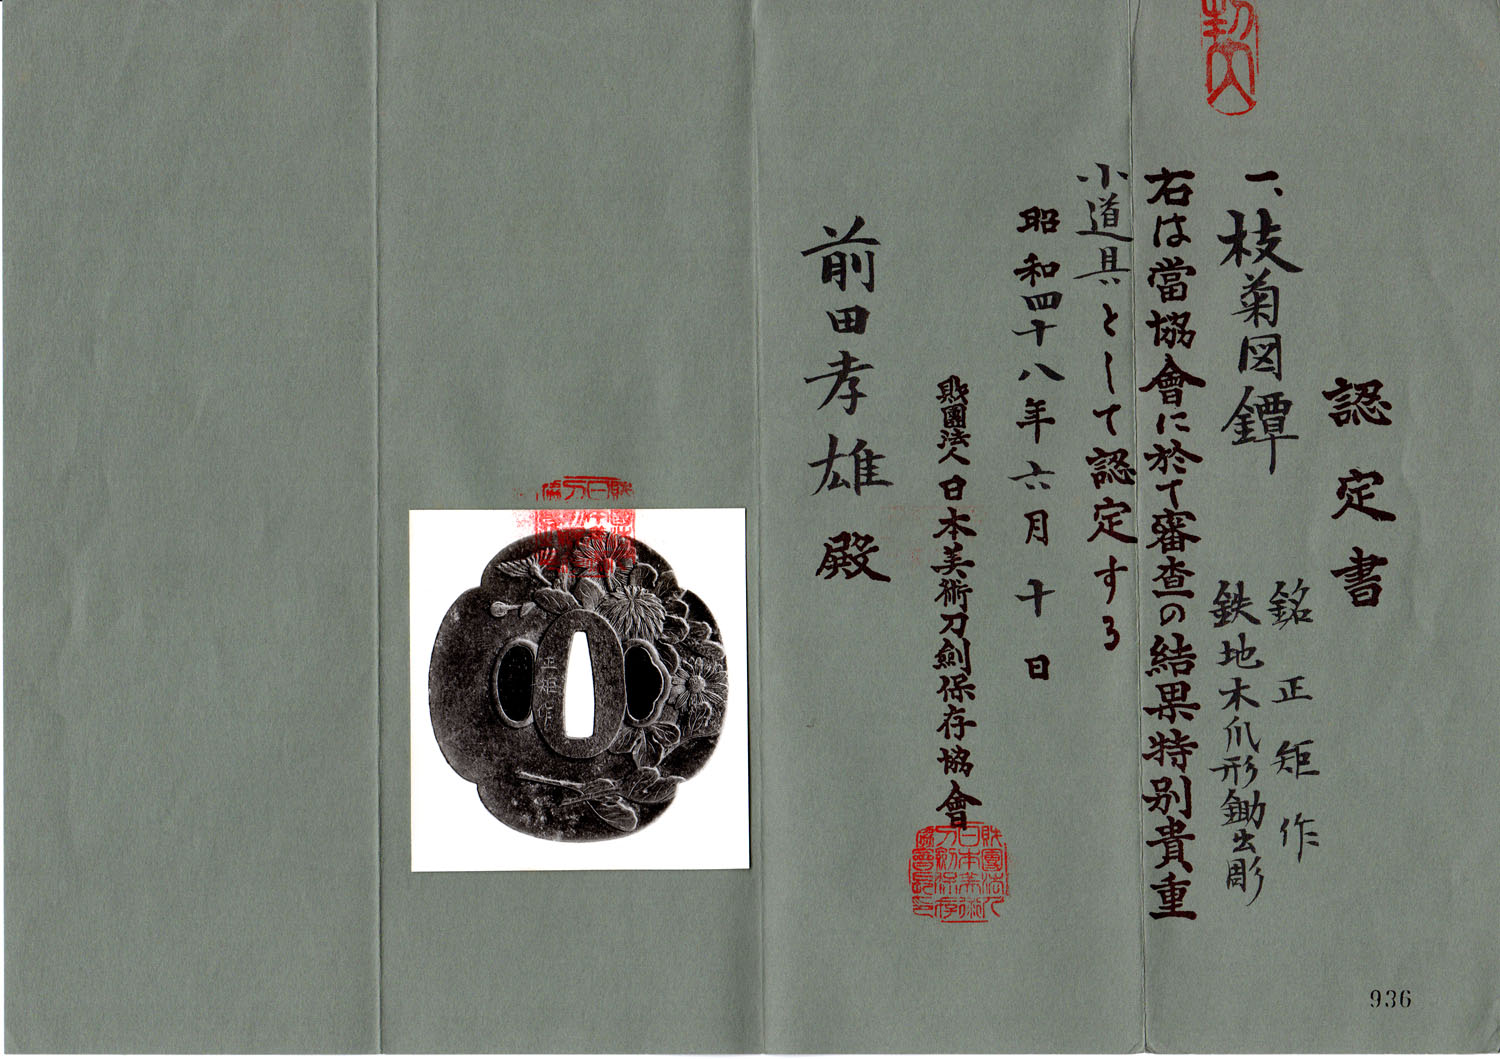 認定書
一、枝菊図鐔
銘 正矩作
鉄地木瓜形鋤出彫
右は當協會に於て審査の結果特別貴重
小道具として認定する
昭和四十八年六月十日
財團法人日本美術刀劍保存協會
前田孝雄殿
正矩作
936